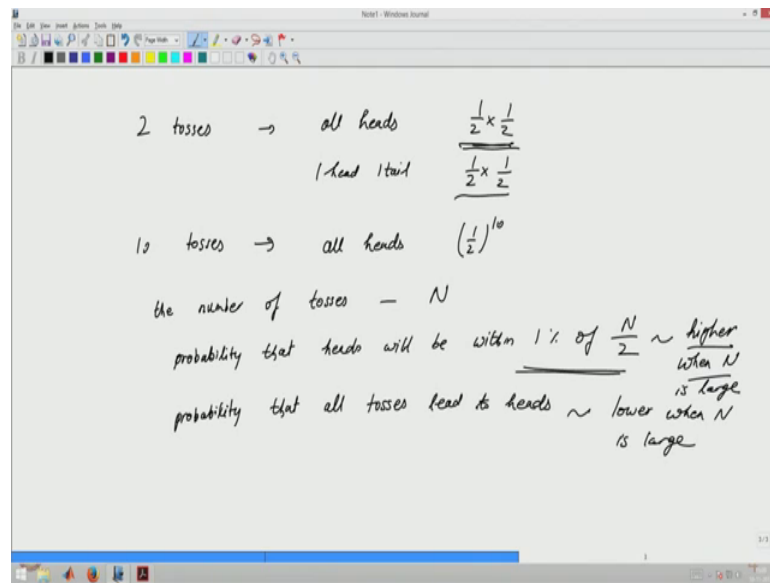 Note1 - Windows Journal
File Edit View Insert Actions Tools Help
Page Width
B I
2 tosses → all heads 1/2 × 1/2
1 head 1 tail 1/2 × 1/2
10 tosses → all heads (1/2)^10
the number of tosses – N
probability that heads will be within 1% of N/2 ~ higher
when N
is large
probability that all tosses lead to heads ~ lower when N
is large
3/3
1